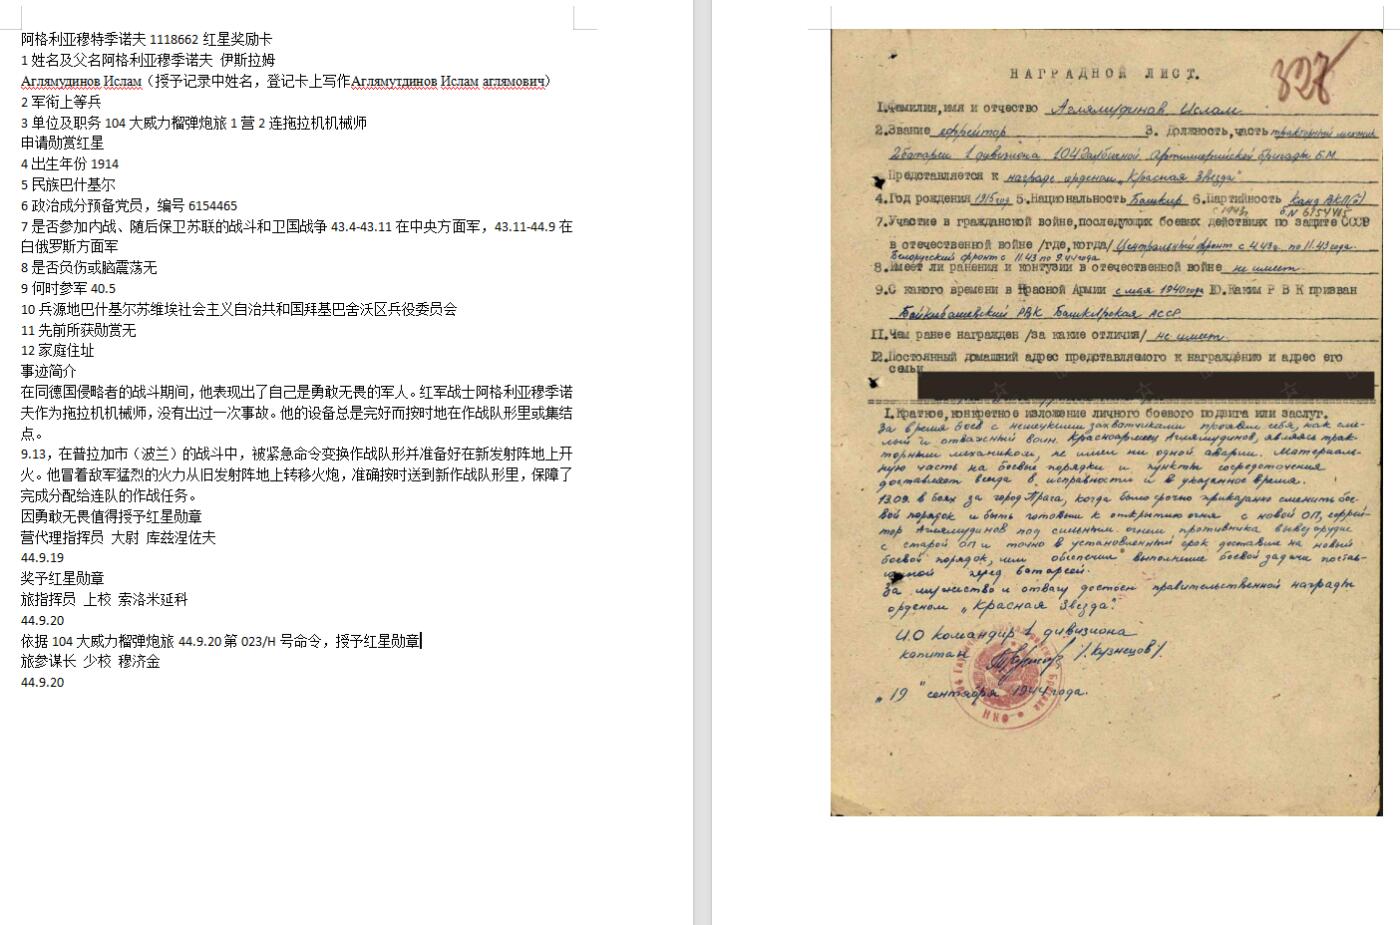 阿格利亚穆特季诺夫 1118662 红星奖励卡
1 姓名及父名阿格利亚穆季诺夫 伊斯拉姆
Аглямудинов Ислам（授予记录中姓名，登记卡上写作Аглямутдинов Ислам аглямович）
2 军衔上等兵
3 单位及职务 104 大威力榴弹炮旅 1 营 2 连拖拉机机械师
申请勋赏红星
4 出生年份 1914
5 民族巴什基尔
6 政治成分预备党员，编号 6154465
7 是否参加内战、随后保卫苏联的战斗和卫国战争 43.4-43.11 在中央方面军，43.11-44.9 在
白俄罗斯方面军
8 是否负伤或脑震荡无
9 何时参军 40.5
10 兵源地巴什基尔苏维埃社会主义自治共和国拜基巴舍沃区兵役委员会
11 先前所获勋赏无
12 家庭住址
事迹简介
在同德国侵略者的战斗期间，他表现出了自己是勇敢无畏的军人。红军战士阿格利亚穆季诺
夫作为拖拉机机械师，没有出过一次事故。他的设备总是完好而按时地在作战队形里或集结
点。
9.13，在普拉加市（波兰）的战斗中，被紧急命令变换作战队形并准备好在新发射阵地上开
火。他冒着敌军猛烈的火力从旧发射阵地上转移火炮，准确按时送到新作战队形里，保障了
完成分配给连队的作战任务。
因勇敢无畏值得授予红星勋章
营代理指挥员 大尉 库兹涅佐夫
44.9.19
奖予红星勋章
旅指挥员 上校 索洛米延科
44.9.20
依据 104 大威力榴弹炮旅 44.9.20 第 023/H 号命令，授予红星勋章
旅参谋长 少校 穆济金
44.9.20
НАГРАДНОЙ ЛИСТ.
328
1.Фамилия,имя и отчество Аглямудинов Ислам
2.Звание ефрейтор 3. Должность,часть тракторный механик
2 батареи 1 дивизиона 104 Гаубичной Артиллерийской бригады Б.М.
Представляется к награде орденом „Красная Звезда"
4.Год рождения 1915 год 5.Национальность Башкир 6.Партийность Канд ВКП(б)
7.Участие в гражданской войне,последующих боевых действиях по защите СССР
в отечественной войне /где,когда/ Центральный фронт с 4.43г. по 11.43 года.
Белорусский фронт с 11.43 по 9.44 года
8.Имеет ли ранения и контузии в отечественной войне не имеет.
9.С какого времени в Красной Армии с мая 1940 года 10.Каким Р В К призван
Байкибашевский РВК Башкирская АССР.
11.Чем ранее награжден /за какие отличия/ не имеет.
12.Постоянный домашний адрес представляемого к награждению и адрес его
семьи
1.Краткое,конкретное изложение личного боевого подвига или заслуг.
За время боев с немецкими захватчиками проявил себя, как сме-
лый и отважный воин. Красноармеец Аглямудинов, являясь трак-
торным механиком, не имел ни одной аварии. Материаль-
ную часть на боевой порядки и пункты сосредоточения
доставляет всегда в исправности и в указанное время.
13.09. в боях за город Прага, когда было срочно приказано сменить бое-
вой порядок и быть готовым к открытию огня с новой ОП, ефрей-
тор Аглямудинов под сильным огнем противника вывез орудие
с старой ОП и точно в установленный срок доставил на новый
боевой порядок, чем обеспечил выполнение боевой задачи постав-
ленной перед батареей.
За мужество и отвагу достоен правительственной награды
орденом „Красная Звезда".
И.О командир 1 дивизиона
капитан /Кузнецов/.
„19" сентября 1944 года.